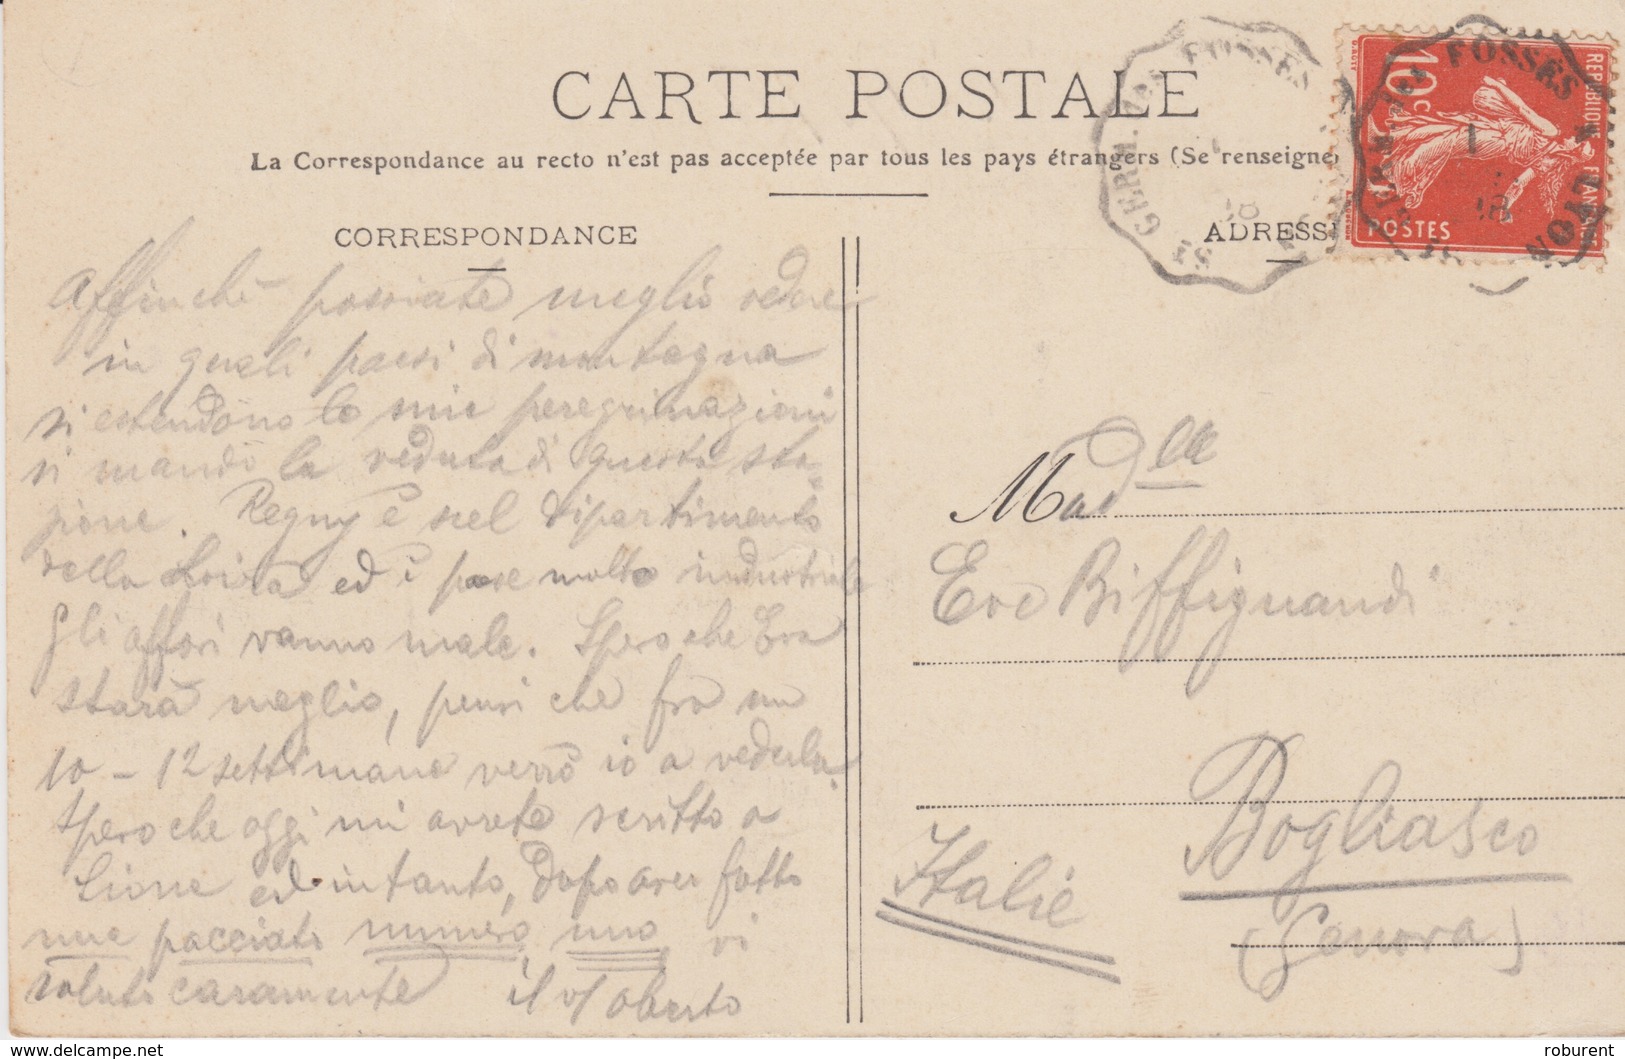 CARTE POSTALE
La Correspondance au recto n'est pas acceptée par tous les pays étrangers (Se renseigne
CORRESPONDANCE
ADRESS
Affinchè possiate meglio vedere
in quali paesi di montagna
si estendono le mie peregrinazioni
si mando la veduta di questa sta-
zione. Regny è nel dipartimento
della Loira ed è paese molto industriale
Gli affari vanno male. Spero che Eva
starà meglio, pensi che fra un
10 - 12 settimane verrò io a vederla.
Spero che oggi mi avrete scritto a
Lione ed intanto, dopo aver fatto
une pacciato numero uno, vi
saluto caramente il vs/ Oberto
Madlle
Eve Biffignandi
Bogliasco
(Genova)
Italie
REPUBLIQUE FRANÇAISE
10c
POSTES
GERM. DES FOSSÉS
GERM. DES FOSSÉS
LYON
roburent